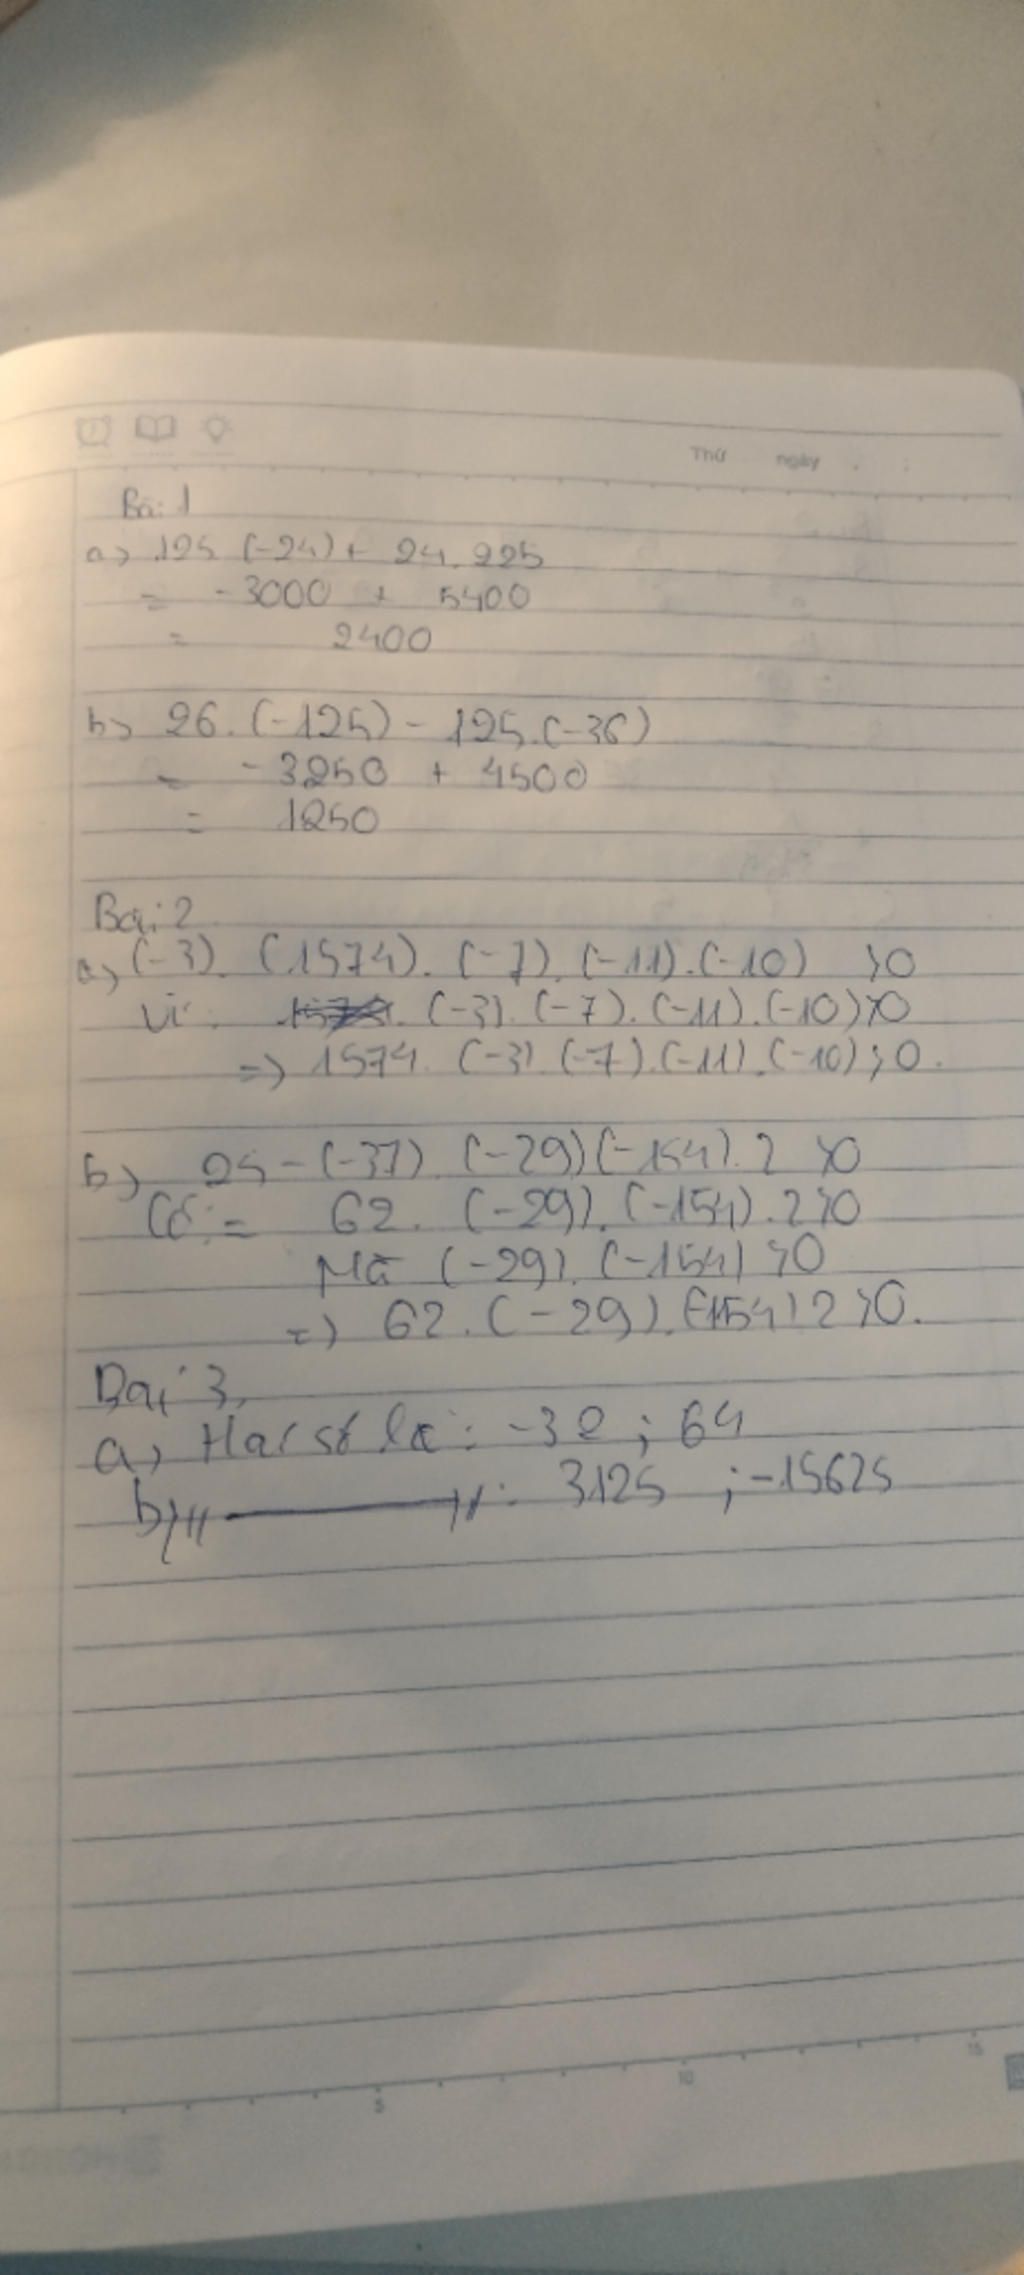 Thứ ngày
Bài 1
a) 125 (-24) + 24. 225
= -3000 + 5400
= 2400
b) 26. (-125) - 125.(-36)
= -3250 + 4500
= 1250
Bài 2
a) (-3). (1574). (-7). (-11).(-10) >0
Vì: (-3). (-7). (-11).(-10)>0
=> 1574. (-3). (-7).(-11).(-10)>0.
b) 25-(-37). (-29)(-154).2 >0
Có:= 62. (-29).(-154).2>0
Mà (-29).(-154)>0
=) 62.(-29).(-154)2>0.
Bài 3,
a, Hai số là: -32 ; 64
b) // ——— // : 3125 ; -15625
5 10 15